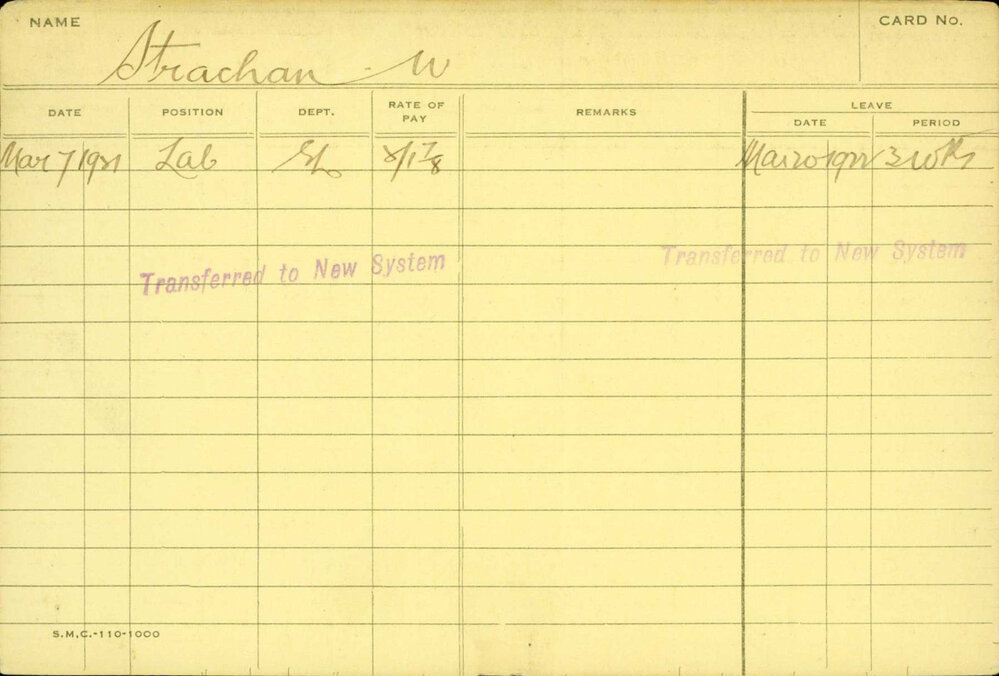 NAME
CARD No.
Strachan W
DATE POSITION DEPT. RATE OF PAY REMARKS LEAVE
DATE PERIOD
Mar 7 1921 Lab EL Mar 20 1922 3 wks
Transferred to New System
Transferred to New System
S.M.C.-110-1000